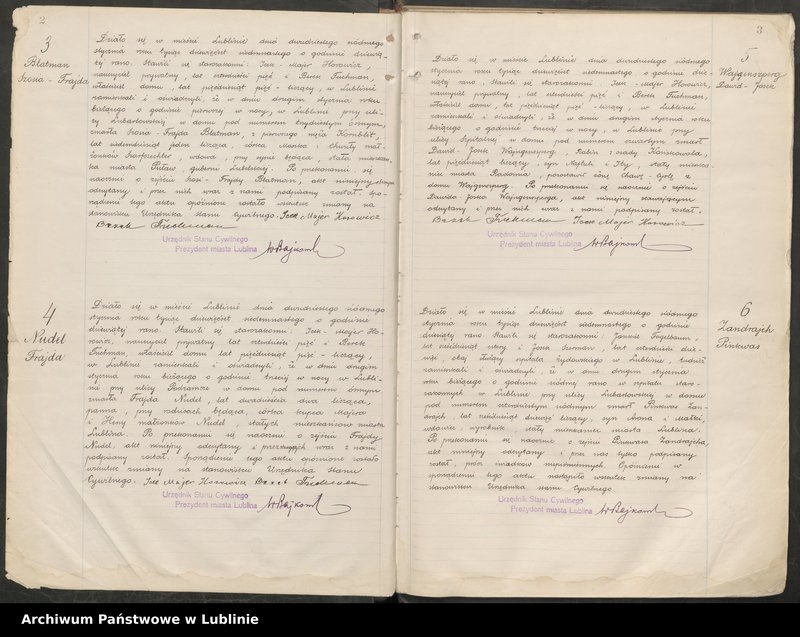 2
3
Blatman
Szosia - Frajda
Działo się w mieście Lublinie dnia dwudziestego siódmego
stycznia roku tysiąc dziewięćset siedemnastego o godzinie dziewią-
tej rano. Stawili się starozakonni: Icek - Majer Horowicz,
nauczyciel prywatny, lat czterdzieści pięć i Berek Fuchman,
właściciel domu, lat pięćdziesiąt pięć - liczący, w Lublinie
zamieszkali i oświadczyli, że w dniu drugim stycznia roku
bieżącego o godzinie pierwszej w nocy, w Lublinie przy uli-
cy Lubartowskiej w domu pod numerem
zmarła - Frajda Blatman, z pierwszego męża
lat siedemdziesiąt jeden licząca, córka i mał-
żonków, wdowa, przy synie będąca, stała mieszkanka
miasta, guberni Lubelskiej. Po przekonaniu się
naocznie o zejściu - Frajdy Blatman, akt niniejszy
odczytany i przez nich wraz z nami podpisany został. Spo-
rządzenie tego aktu opóźnione zostało wskutek zmiany na
stanowisku Urzędnika stanu Cywilnego. Icek Majer Horowicz
Berek
Urzędnik Stanu Cywilnego
Prezydent miasta Lublina
4
Nudel
Frajda
Działo się w mieście Lublinie dnia dwudziestego siódmego
stycznia roku tysiąc dziewięćset siedemnastego o godzinie
dziewiątej rano. Stawili się starozakonni: Icek - Majer Ho-
rowicz, nauczyciel prywatny lat czterdzieści pięć i Berek
Fuchman, właściciel domu lat pięćdziesiąt pięć - liczący,
w Lublinie zamieszkali i oświadczyli, że w dniu drugim
stycznia roku bieżącego o godzinie trzeciej w nocy w Lubli-
nie przy ulicy Podzamcze w domu pod numerem ósmym,
zmarła Frajda Nudel, lat dwadzieścia dwa licząca,
panna, przy rodzicach będąca, córka kupca Majera
i Heny małżonków Nudel, stałych mieszkańców miasta
Lublina. Po przekonaniu się naocznie o zejściu Frajdy
Nudel, akt niniejszy odczytany i przez nich wraz z nami
podpisany został. Sporządzenie tego aktu opóźnione zostało
wskutek zmiany na stanowisku Urzędnika stanu
Cywilnego. Icek Majer Horowicz Berek
Urzędnik Stanu Cywilnego
Prezydent miasta Lublina
3
5
Wajgenszperg
Dawid - Josek
Działo się w mieście Lublinie dnia dwudziestego siódmego
stycznia roku tysiąc dziewięćset siedemnastego o godzinie dzie-
wiątej rano. Stawili się starozakonni: Icek - Majer Horowicz,
nauczyciel prywatny, lat czterdzieści pięć i Berek Fuchman,
właściciel domu, lat pięćdziesiąt pięć - liczący, w Lublinie
zamieszkali i oświadczyli, że w dniu drugim stycznia roku
bieżącego o godzinie trzeciej w nocy, w Lublinie przy
ulicy Szpitalnej w domu pod numerem czwartym zmarł
Dawid - Josek Wajgenszperg, Rabin z osady Końskowola,
lat pięćdziesiąt liczący, syn Naftuli i, stały mieszka-
niec miasta Radomia, pozostawił żonę z
domu Wajgenszperg. Po przekonaniu się naocznie o zejściu
Dawida - Joska Wajgenszperga, akt niniejszy stawającym
odczytany i przez nich wraz z nami podpisany został.
Berek Icek Majer Horowicz
Urzędnik Stanu Cywilnego
Prezydent miasta Lublina
6
Zandrajch
Pinkwas
Działo się w mieście Lublinie dnia dwudziestego siódmego
stycznia roku tysiąc dziewięćset siedemnastego o godzinie
dziesiątej rano. Stawili się starozakonni: Jankiel Fogelbaum,
lat i Josek, lat czterdzieści dzie-
więć, obaj służący szpitala żydowskiego w Lublinie, tudzież
zamieszkali i oświadczyli, że w dniu drugim stycznia
roku bieżącego o godzinie siódmej rano w szpitalu staro-
zakonnych w Lublinie przy ulicy Lubartowskiej w domu
pod numerem siódmym zmarł Pinkwas Zan-
drajch, lat liczący, syn Arona i Małki,
wdowiec, wyrobnik, stały mieszkaniec miasta Lublina.
Po przekonaniu się naocznie o zejściu Pinkwasa Zandrajcha,
akt niniejszy odczytany i przez nas tylko podpisany
został, prócz świadków niepiśmiennych. Opóźnienie w
sporządzeniu tego aktu nastąpiło wskutek zmiany na
stanowisku Urzędnika stanu Cywilnego.
Urzędnik Stanu Cywilnego
Prezydent miasta Lublina
Archiwum Państwowe w Lublinie